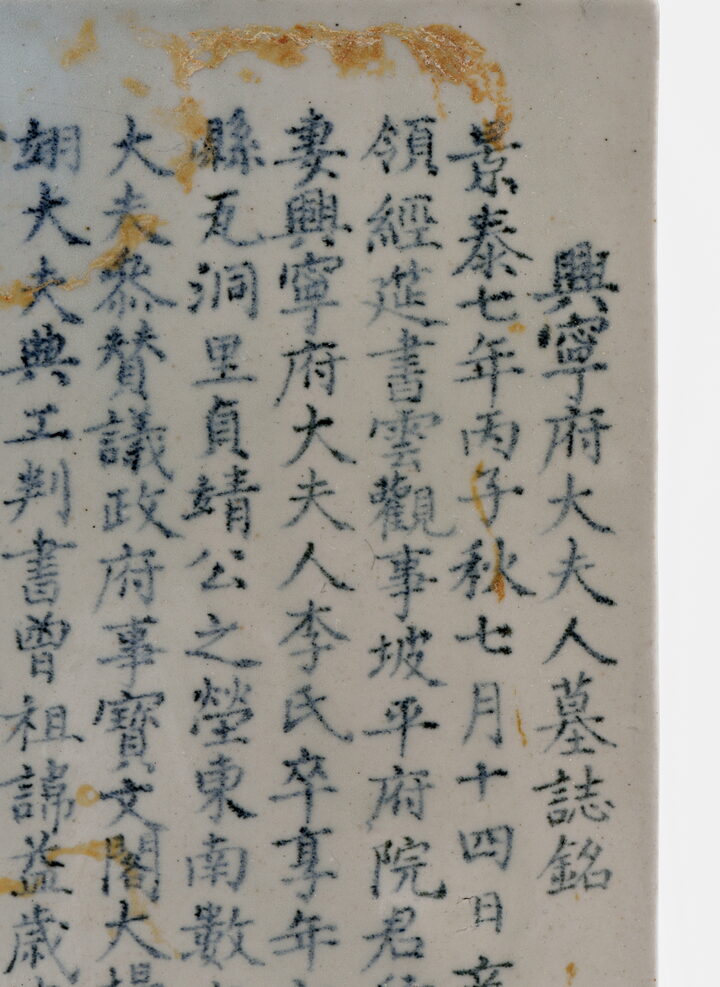 興寧府大夫人墓誌銘
景泰七年丙子秋七月十四日
領經筵書雲觀事坡平府院君
妻興寧府大夫人李氏卒享年
縣瓦洞里貞靖公之塋東南數
大夫叅賛議政府事寶文閣大提
翊大夫典工判書曾祖諱益歲